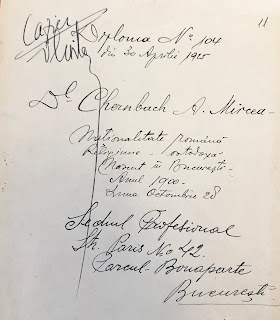 11
Cazier
Diploma Nº 104
din 30 Aprilie 1925
Dl. Chernbach A. Mircea-
Naționalitate română
Religiune - ortodoxă
Născut în București-
Anul 1900-
Luna Octombrie 28
Sediul Profesional
Str. Paris No 42.
Parcul-Bonaparte
București